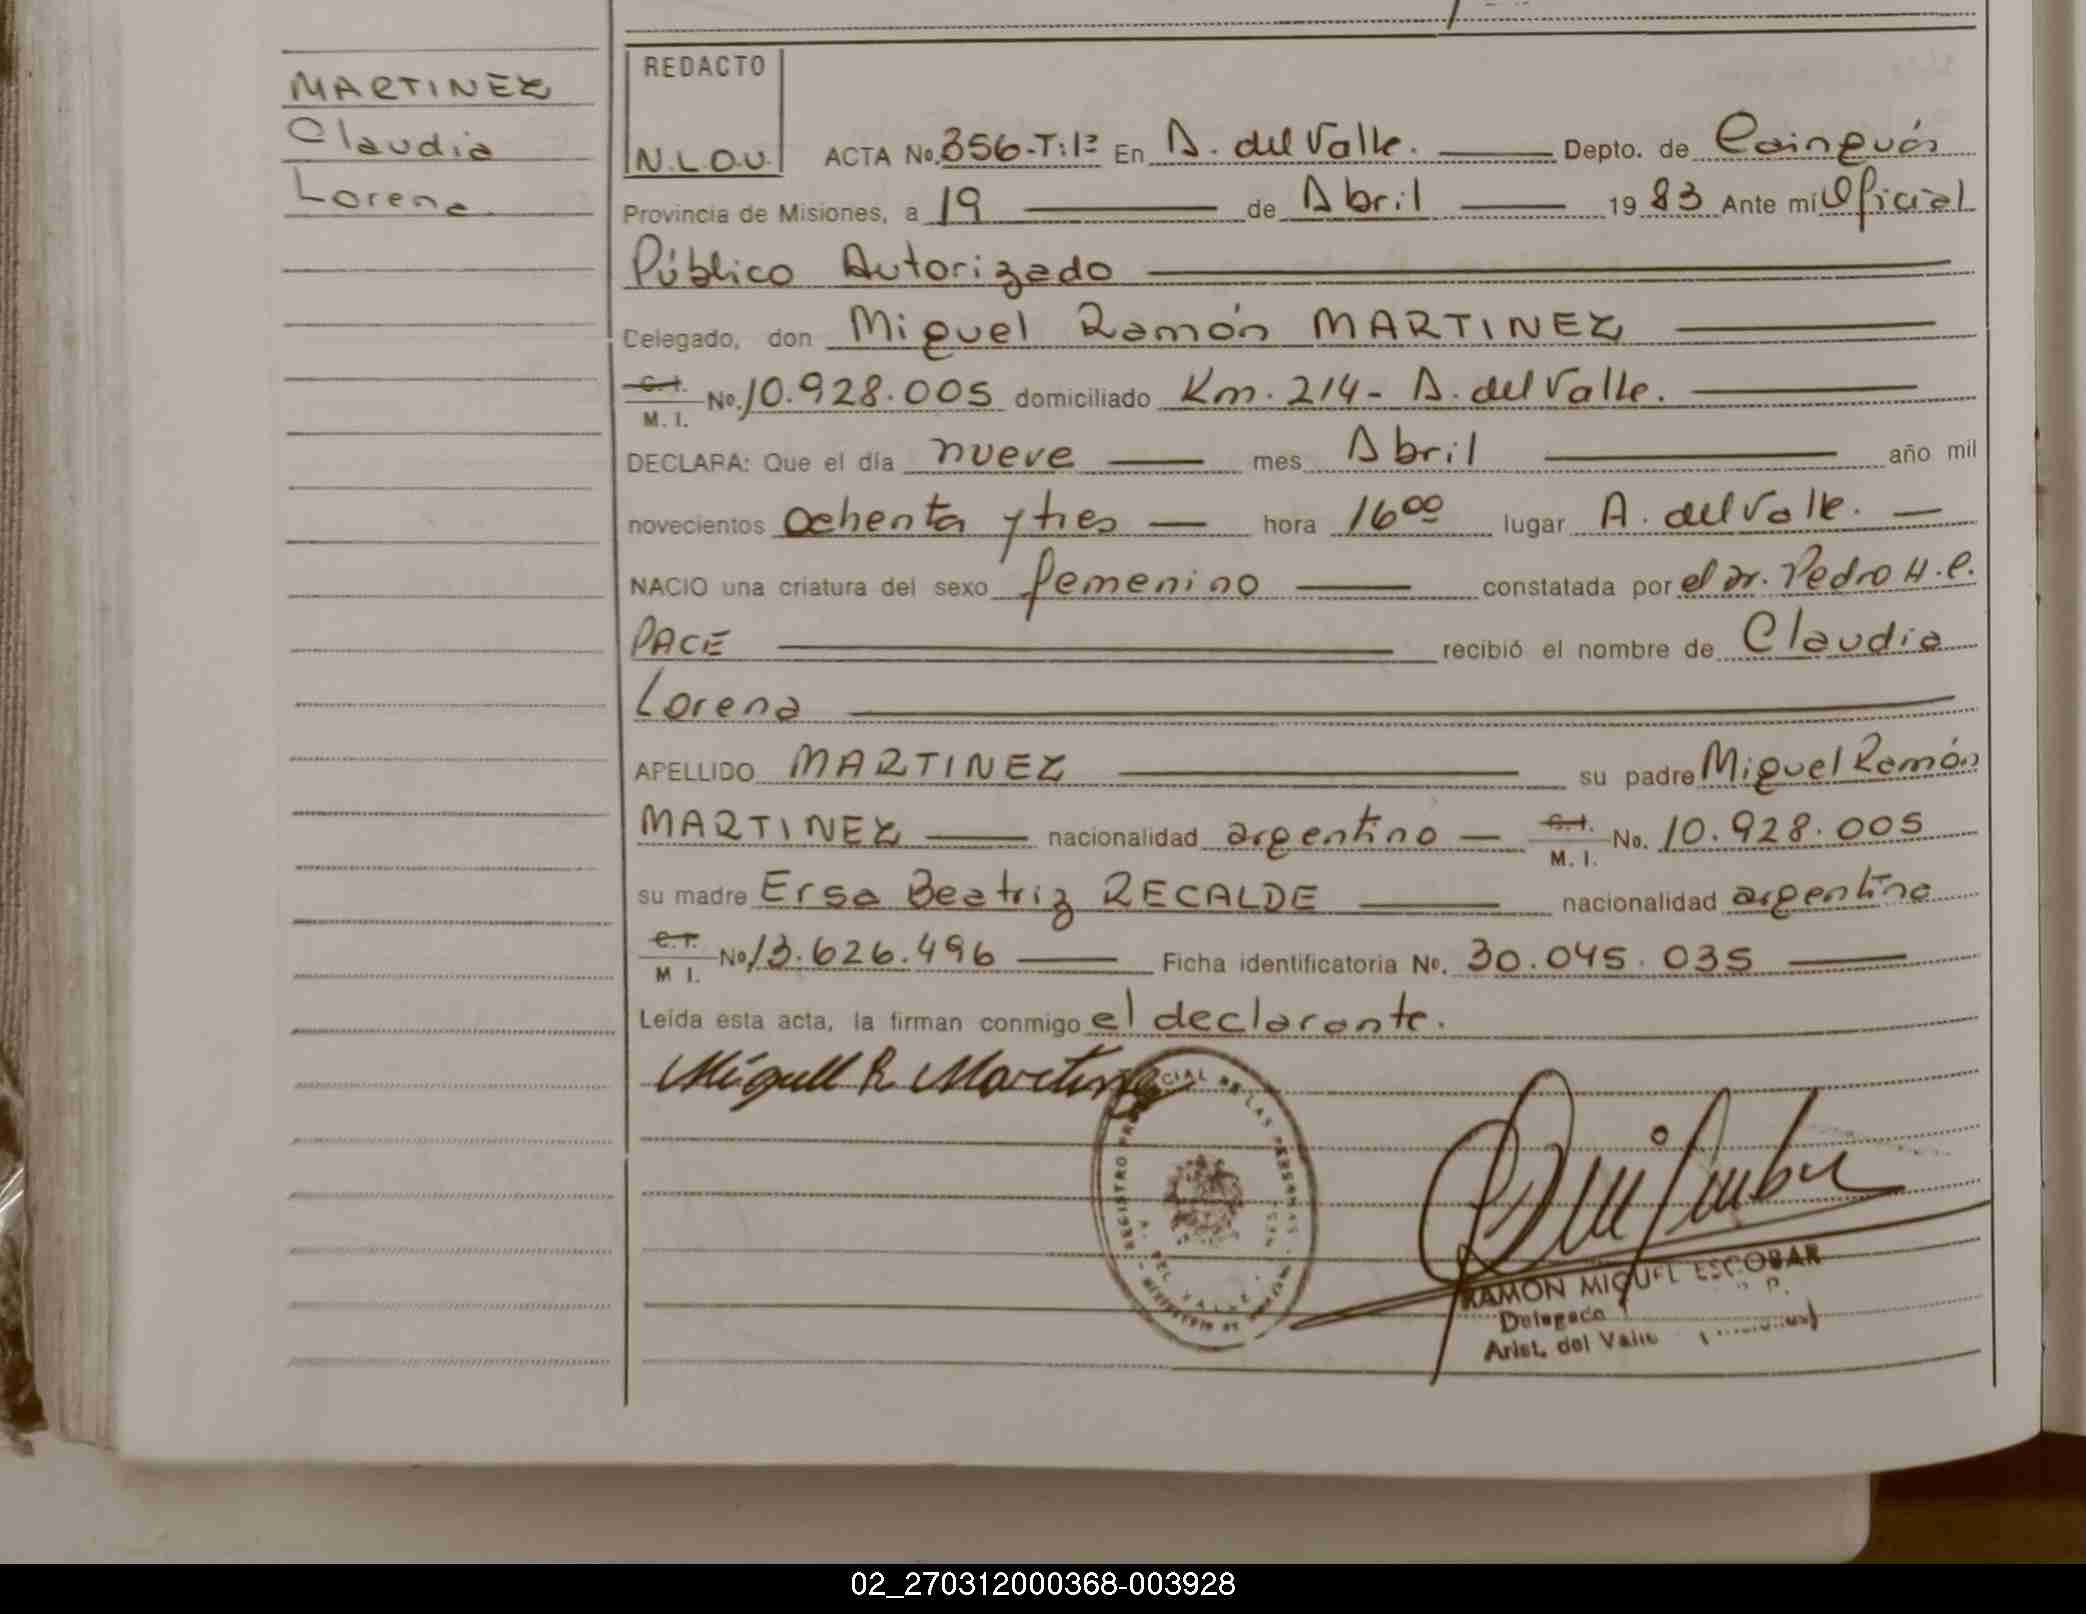 MARTINEZ
Claudia
Lorena
REDACTO
N.L.O.U.
ACTA No. 356-T:1º En A. del Valle. Depto. de Cainguás
Provincia de Misiones, a 19 de Abril 1983 Ante mí Oficial
Público Autorizado
Celegado, don Miguel Ramón MARTINEZ
C.I. M. I. No. 10.928.005 domiciliado Km. 214- A. del Valle.
DECLARA: Que el día nueve mes Abril año mil
novecientos ochenta y tres hora 16 00 lugar A. del Valle.
NACIO una criatura del sexo femenino constatada por el Dr. Pedro H.C.
PACE recibió el nombre de Claudia
Lorena
APELLIDO MARTINEZ su padre Miguel Ramón
MARTINEZ nacionalidad argentino C.I. M. I. No. 10.928.005
su madre Ersa Beatriz RECALDE nacionalidad argentina
C.I. M I. No. 13.626.496 Ficha identificatoria No. 30.045.035
Leída esta acta, la firman conmigo el declarante.
Miguell R Martinez
REGISTRO PROVINCIAL DE LAS PERSONAS
A. DEL VALLE
RAMON MIGUEL ESCOBAR
Delegado
Arist. del Valle
02_270312000368-003928